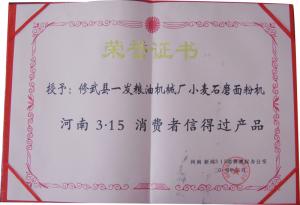 荣誉证书
授予：修武县一发粮油机械厂小麦石磨面粉机
河南 3·15 消费者信得过产品